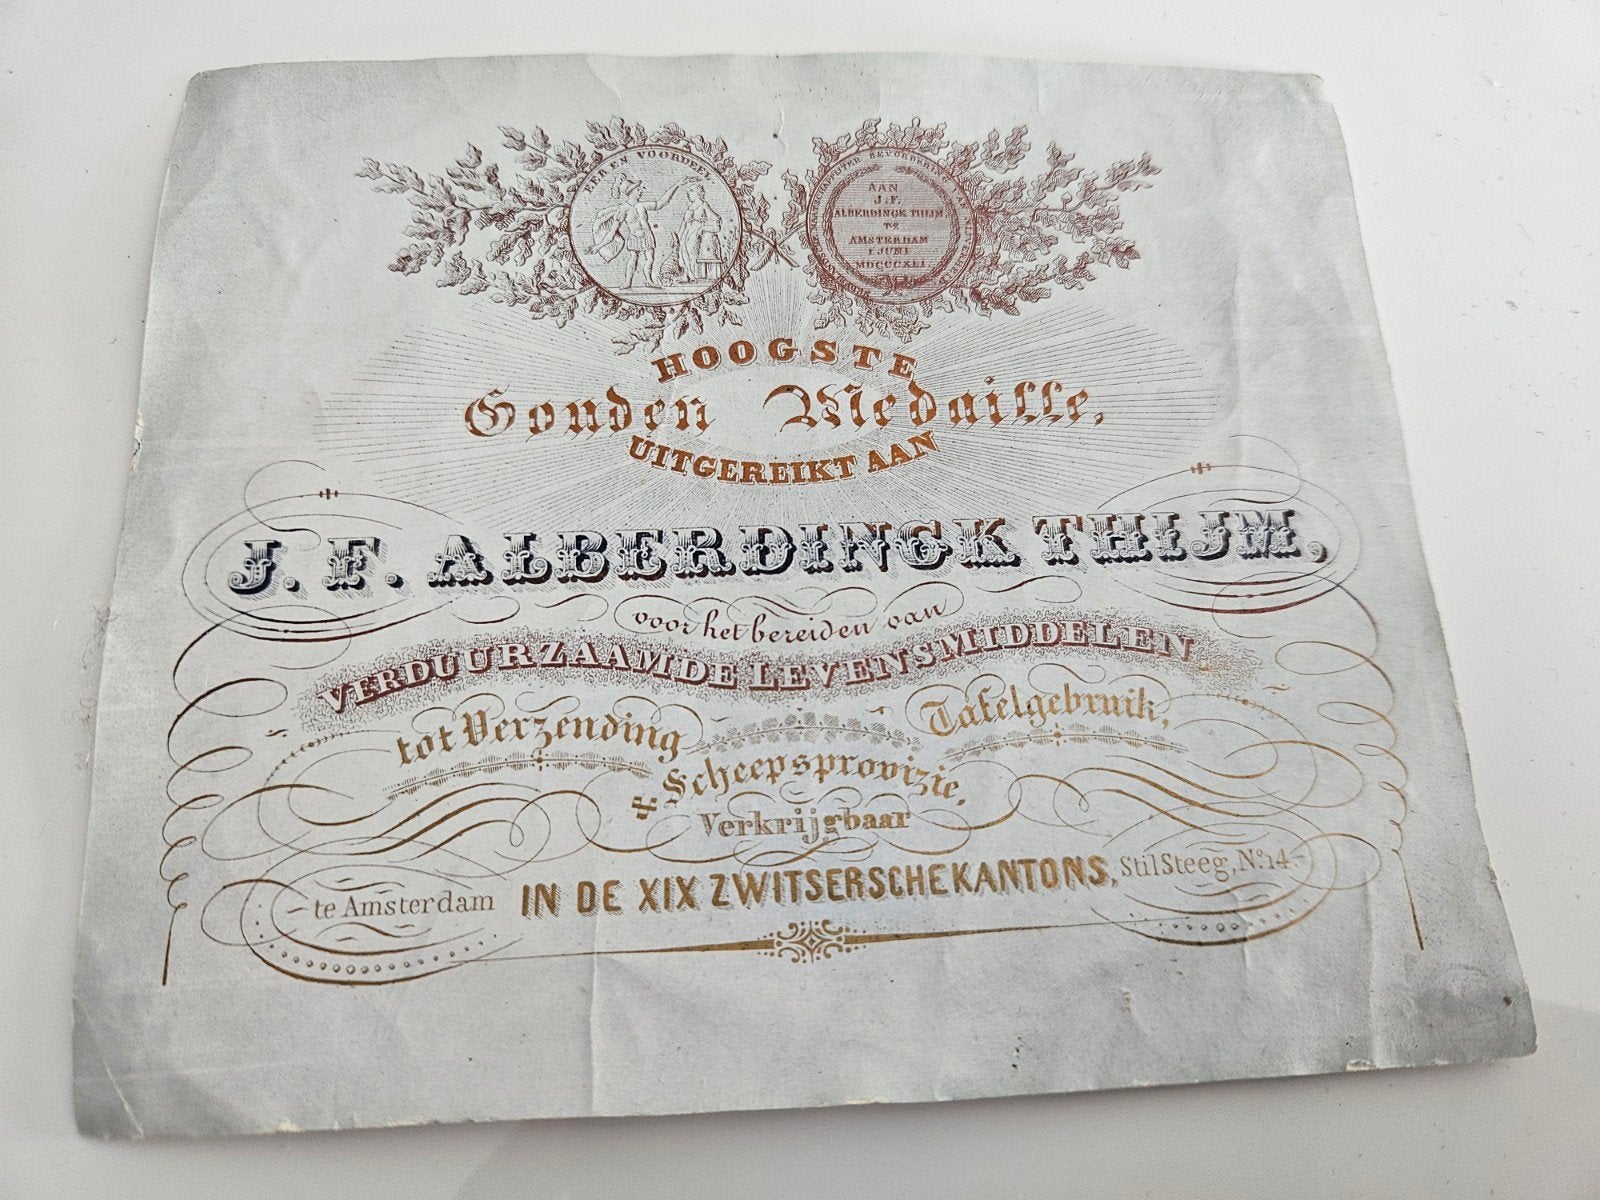 EER EN VOORDEEL
AAN
J. F.
ALBERDINGK THIJM
TE
AMSTERDAM
1 JUNI
MDCCCXLI
HOOGSTE
Gouden Medaille,
UITGEREIKT AAN
J. F. ALBERDINGK THIJM,
voor het bereiden van
VERDUURZAAMDE LEVENSMIDDELEN,
tot Verzending Tafelgebruik,
& Scheepsprovizie,
Verkrijgbaar
te Amsterdam IN DE XIX ZWITSERSCHE KANTONS, StilSteeg, No. 14